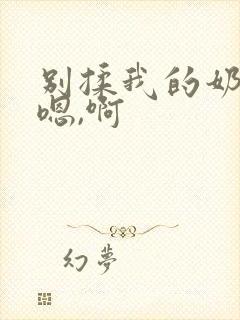 别揉我的奶
嗯,啊
幻夢